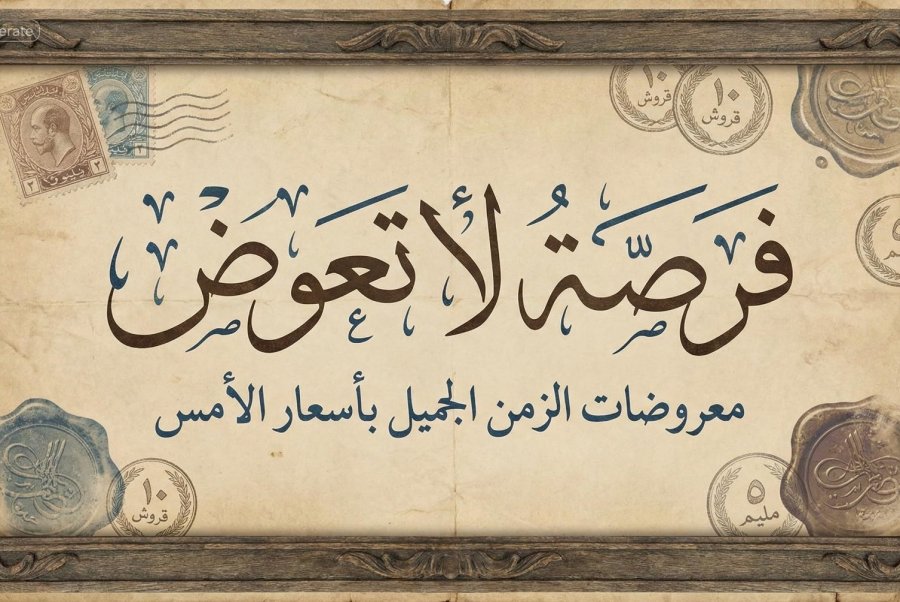 erate
١٠
قروش
١٠
قروش
فُرصَةٌ لا تُعَوَّض
معروضات الزمن الجميل بأسعار الأمس
١٠
قروش
٥
مليم